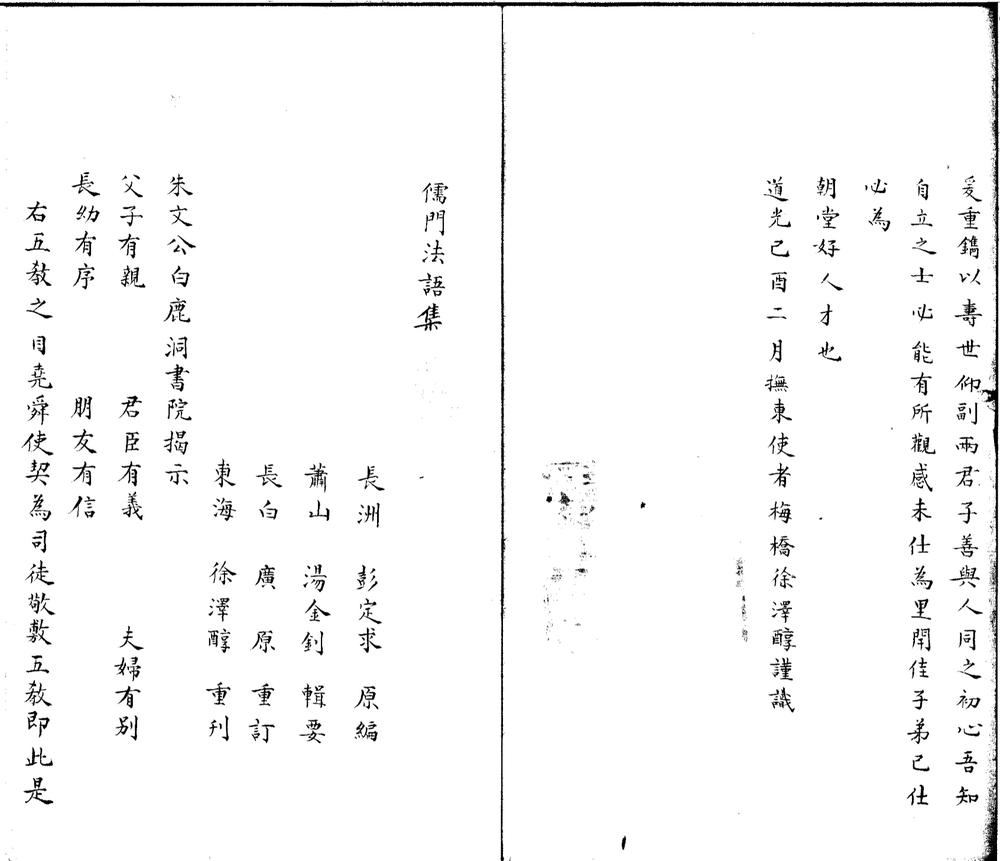 爰重鐫以壽世仰副兩君子善與人同之初心吾知
自立之士必能有所觀感未仕為里閈佳子弟已仕
必為
朝堂好人才也
道光己酉二月撫東使者梅橋徐澤醇謹識
儒門法語集
長洲 彭定求 原編
蕭山 湯金釗 輯要
長白 廣原 重訂
東海 徐澤醇 重刊
朱文公白鹿洞書院揭示
父子有親 君臣有義 夫婦有别
長幼有序 朋友有信
右五教之目堯舜使契為司徒敬敷五教即此是